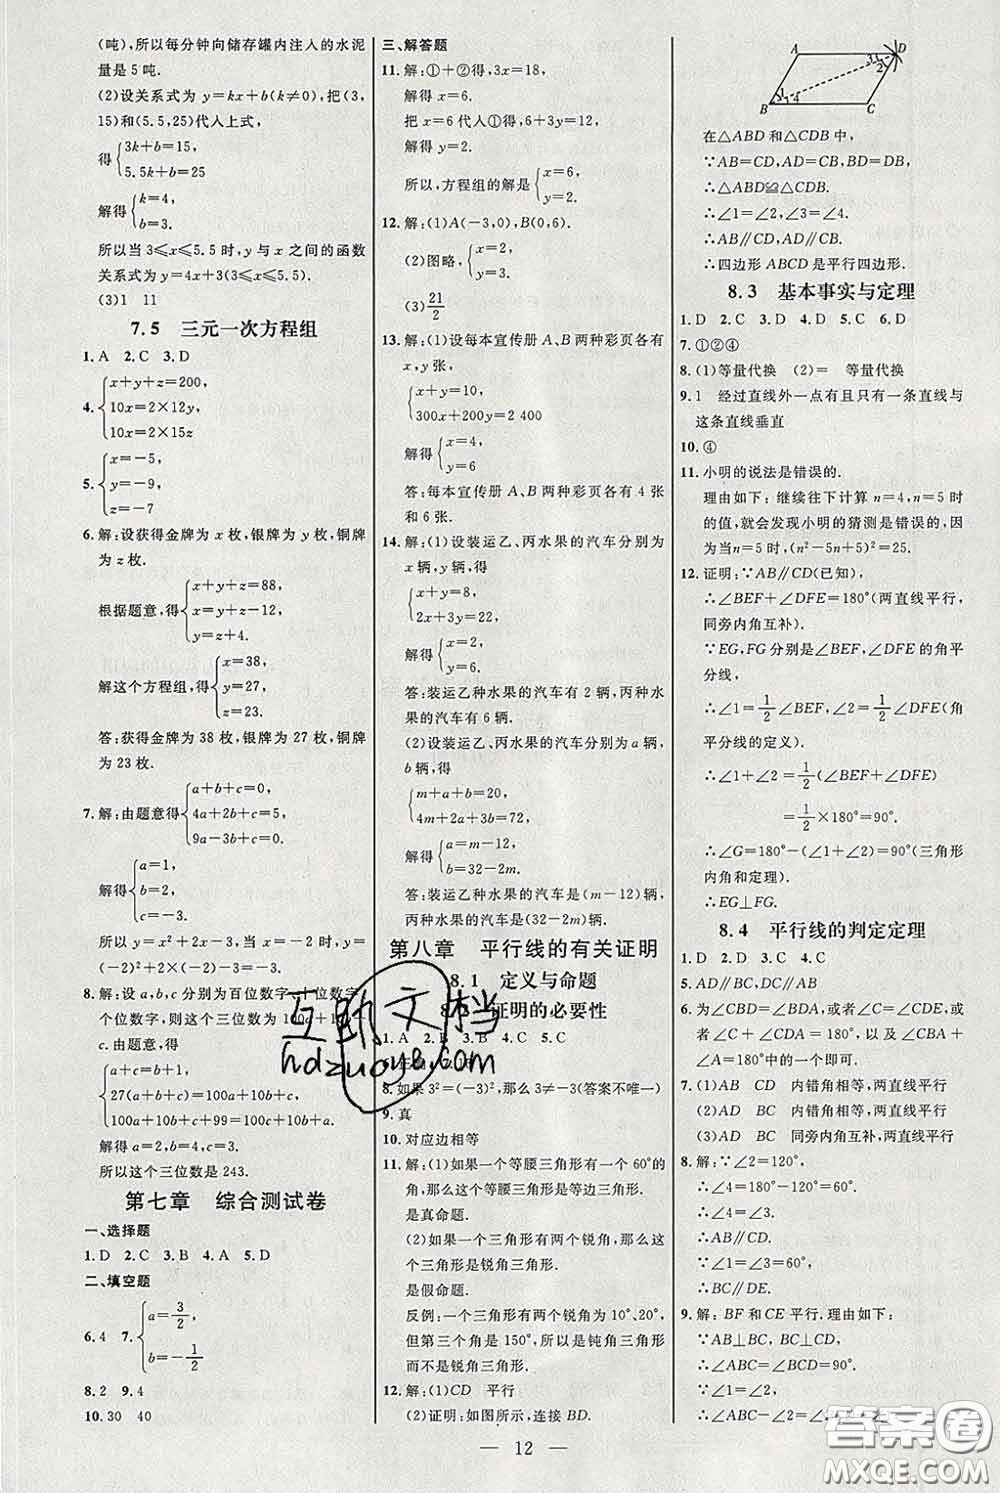 (吨),所以每分钟向储存罐内注入的水泥
量是5吨.
(2)设关系式为y=kx+b(k≠0),把(3,
15)和(5.5,25)代人上式,
得{3k+b=15,
5.5k+b=25
解得{k=4,
b=3.
所以当3≤x≤5.5时,y与x之间的函数
关系式为y=4x+3(3≤x≤5.5).
(3)1 11
7.5 三元一次方程组
1.A 2.C 3.D
4.{x+y+z=200,
10x=2×12y,
10x=2×15z
5.{x=-5,
y=-9,
z=-7
6.解:设获得金牌为x枚,银牌为y枚,铜牌
为z枚.
根据题意,得{x+y+z=88,
x=y+z-12,
y=z+4.
解这个方程组,得{x=38,
y=27,
z=23.
答:获得金牌为38枚,银牌为27枚,铜牌
为23枚.
7.解:由题意得{a+b+c=0,
4a+2b+c=5,
9a-3b+c=0.
解得{a=1,
b=2,
c=-3.
所以y=x²+2x-3,当x=-2时,y=
(-2)²+2×(-2)-3=-3.
8.解:设a,b,c分别为百位数字、十位数字、
个位数字,则这个三位数为100a+10b+
c.由题意,得
{a+c=b+1,
27(a+b+c)=100a+10b+c,
100a+10b+c+99=100c+10b+a.
解得a=2,b=4,c=3.
所以这个三位数是243.
第七章 综合测试卷
一、选择题
1.D 2.C 3.B 4.A 5.D
二、填空题
6.4 7.{a=3/2,
b=-1/2
8.2 9.4
10.30 40
三、解答题
11.解:①+②得,3x=18,
解得x=6.
把x=6代人①得,6+3y=12,
解得y=2.
所以,方程组的解是{x=6,
y=2.
12.解:(1)A(-3,0),B(0,6).
(2)图略,{x=2,
y=2.
(3)21/2
13.解:(1)设每本宣传册A、B两种彩页各有
x,y张,
{x+y=10,
300x+200y=2 400
解得{x=4,
y=6.
答:每本宣传册A、B两种彩页各有4张
和6张.
14.解:(1)设装运乙、丙水果的汽车分别为
x辆,y辆,得
{x+y=8,
2x+3y=22,
解得{x=2,
y=6.
答:装运乙种水果的汽车有2辆,丙种水
果的汽车有6辆.
(2)设装运乙、丙水果的汽车分别为a辆,
b辆,得
{m+a+b=20,
4m+2a+3b=72,
解得{a=m-12,
b=32-2m.
答:装运乙种水果的汽车是(m-12)辆,
丙种水果的汽车是(32-2m)辆.
第八章 平行线的有关证明
8.1 定义与命题
证明的必要性
1.A 2.B 3.B 4.C 5.C
8.如果3²=(-3)²,那么3≠-3(答案不唯一)
9.真
10.对应边相等
11.解:(1)如果一个等腰三角形有一个内角是60°
的角,那么这个等腰三角形是等边三角形.
是真命题.
(2)如果一个三角形有两个锐角,那么这
个三角形是锐角三角形.
是假命题.
反例:一个三角形有两个锐角为10°、20°,
但第三个角是150°,所以是钝角三角形
而不是锐角三角形.
12.解:(1)CD 平行
(2)证明:如图所示,连接BD.
A D B C 1 2 3 4
在△ABD和△CDB中,
∵AB=CD,AD=BC,BD=DB,
∴△ABD≌△CDB.
∴∠1=∠2,∠3=∠4.
∴AB∥CD,AD∥BC.
∴四边形ABCD是平行四边形.
8.3 基本事实与定理
1.D 2.C 3.D 4.D 5.C 6.D
7.①②④
8.(1)等量代换 (2)= 等量代换
9.1 经过直线外一点有且只有一条直线与
这条直线垂直
10.④
11.小明的说法是错误的.
理由如下:继续往下计算n=4,n=5时
的值,就会发现小明的猜测是错误的,因
为当n=5时,(n²-5n+5)²=25.
12.证明:∵AB∥CD(已知),
∴∠BEF+∠DFE=180°(两直线平行,
同旁内角互补).
∵EG,FG分别是∠BEF,∠DFE的角平
分线.
∴∠1=1/2∠BEF,∠2=1/2∠DFE(角
平分线的定义).
∴∠1+∠2=1/2(∠BEF+∠DFE)
=1/2×180°=90°.
∴∠G=180°-(∠1+∠2)=90°(三角形
内角和定理).
∴EG⊥FG.
8.4 平行线的判定定理
1.D 2.C 3.C 4.C
5.AD∥BC
6.为∠ABC=∠DCE,或∠BAC=∠ACD,
或∠C+∠CDA=180°,以及∠CBA+
∠A=180°中的一个即可.
7.(1)AB CD 内错角相等,两直线平行
(2)AD BC 内错角相等,两直线平行
(3)AD BC 同旁内角互补,两直线平行
8.解:∵∠2=120°,
∴∠4=180°-120°=60°.
∴∠4=∠3.
∴AB∥CD.
∵∠1=∠2=60°,
∴BC∥DE.
9.解:BF和CE平行.理由如下:
∵AB⊥BC,BC⊥CD,
∴∠ABC=∠BCD=90°.
∵∠1=∠2,
— 12 —
互助文档
hdzuoye.com
答案圈
MXQE.COM